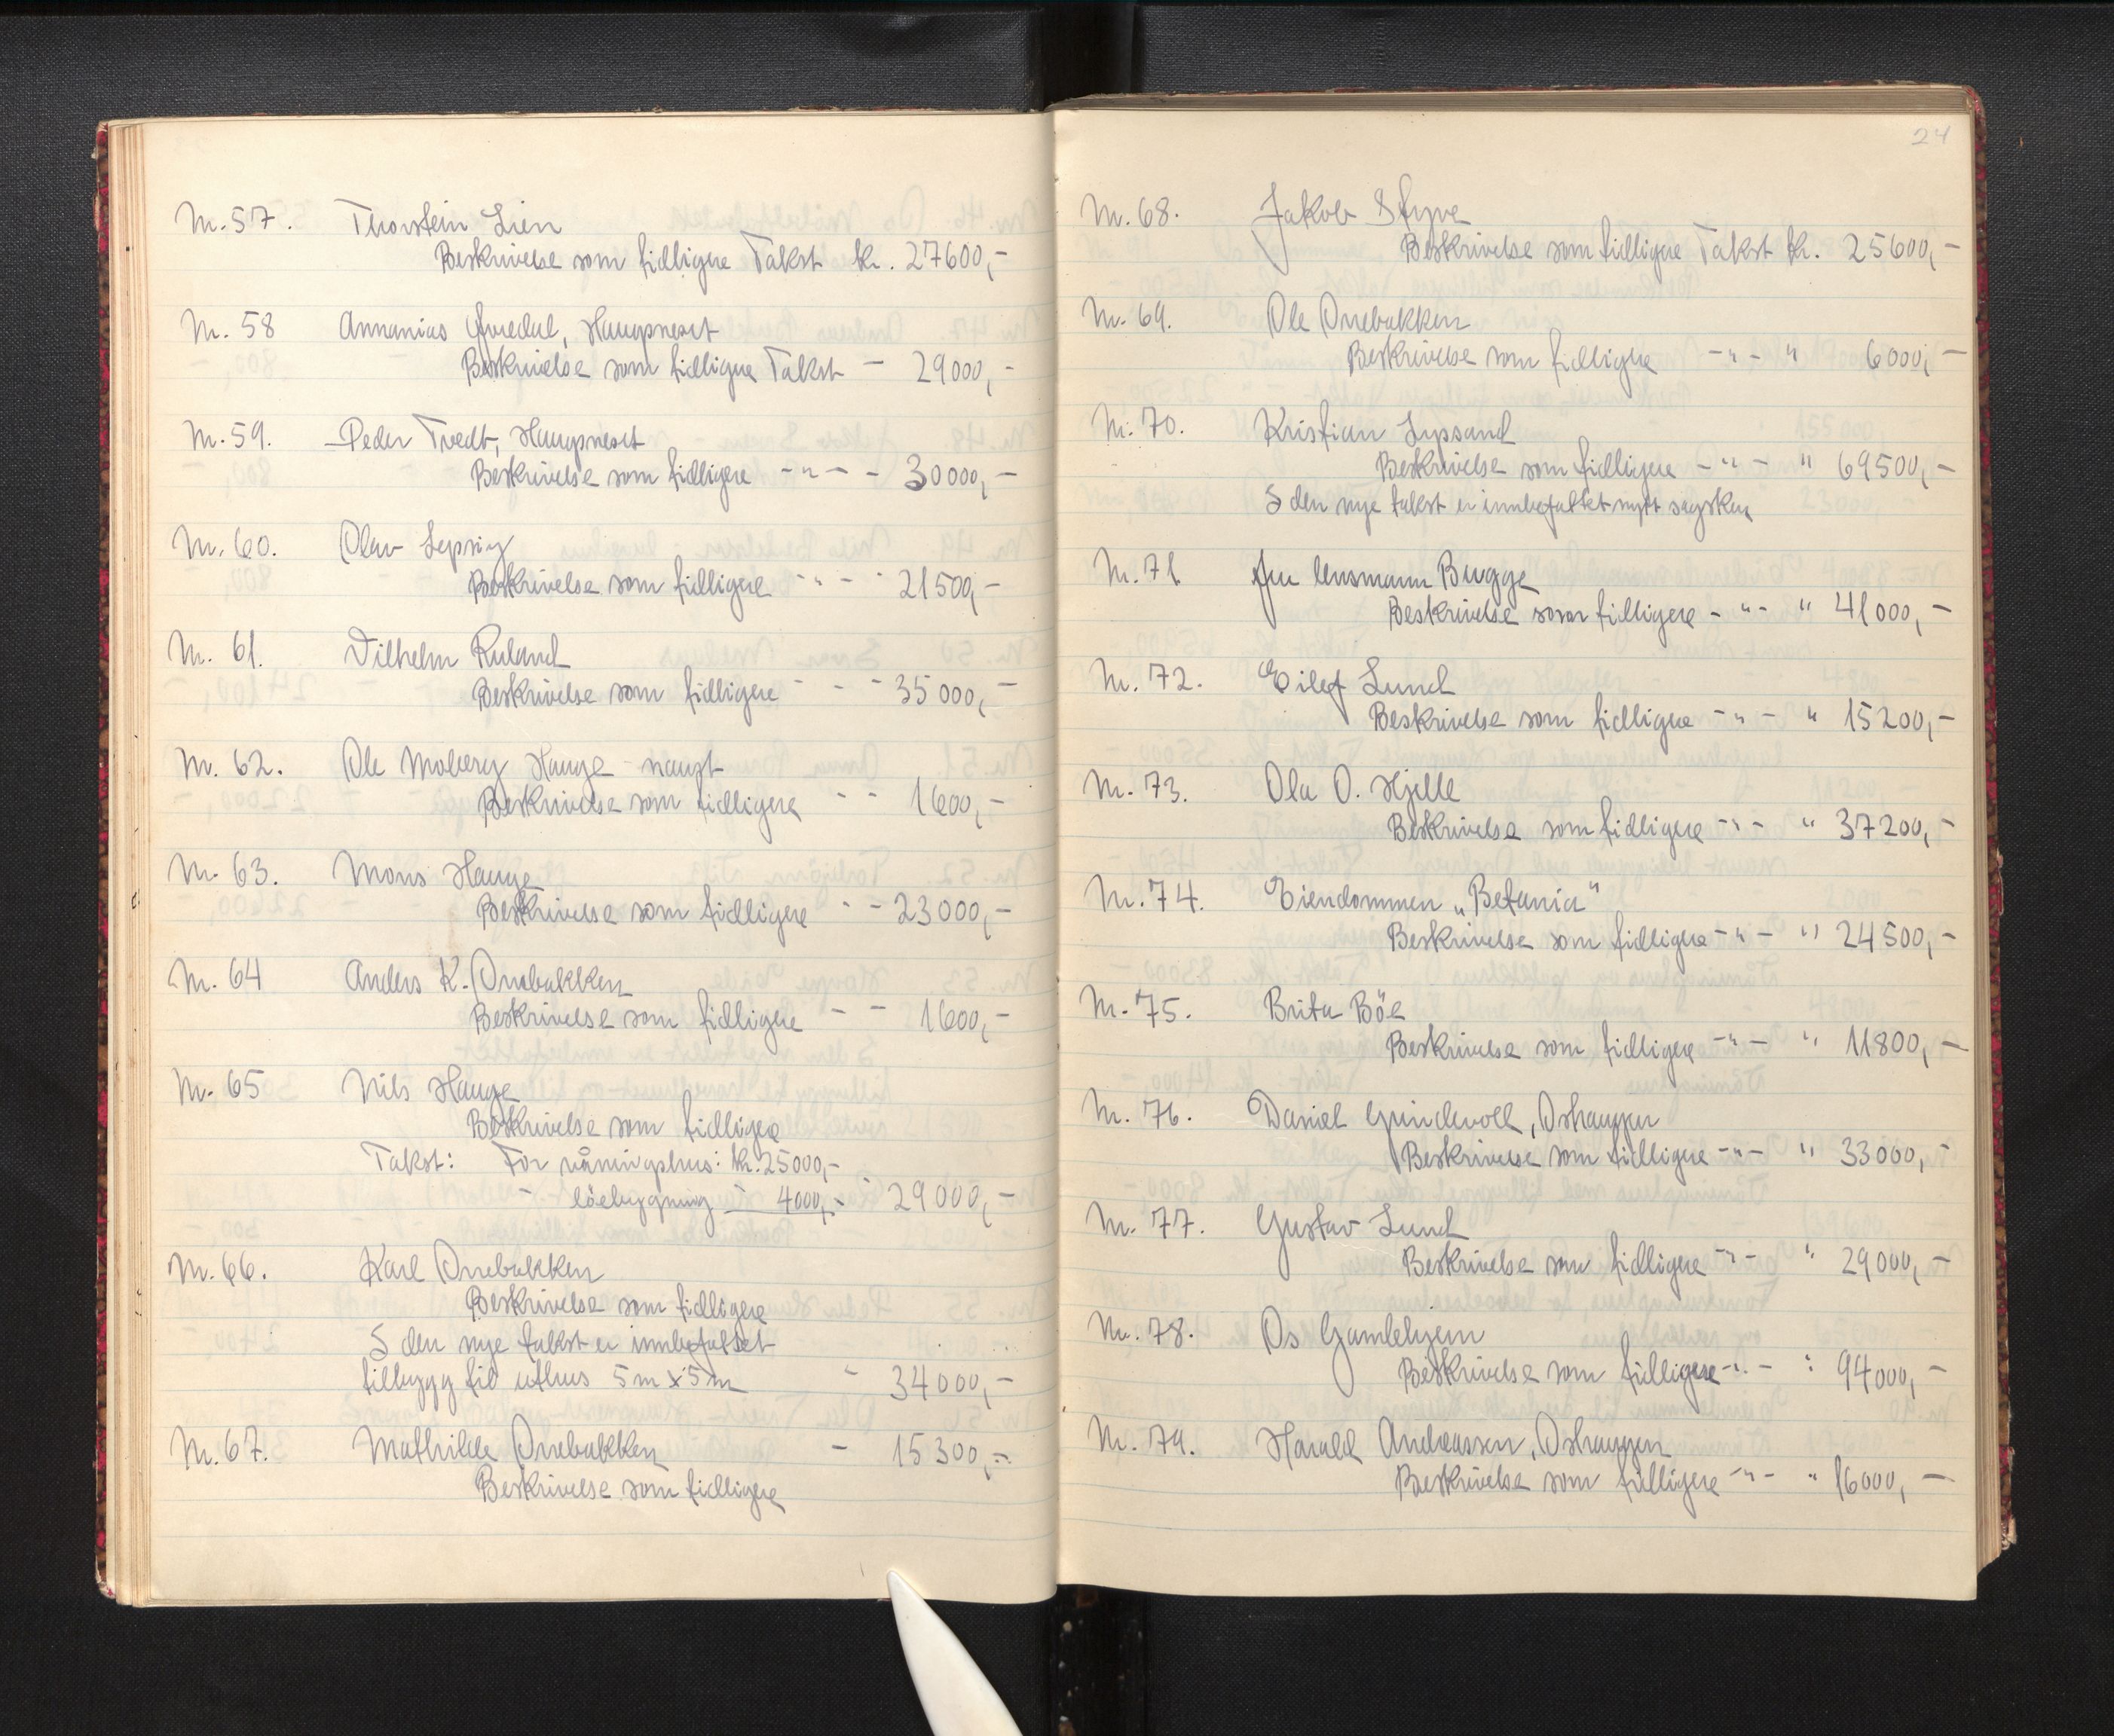 Nr. 57. Thorstein Lien
Beskrivelse som tidligere Takst kr. 27600,-
Nr. 58 Annanias Øvredal, Haugsneset
Beskrivelse som tidligere Takst - 29000,-
Nr. 59. Peder Tvedt, Haugsneset
Beskrivelse som tidligere -"- - 30000,-
Nr. 60. Olav Lepsøy
Beskrivelse som tidligere -"- - 21500,-
Nr. 61. Vilhelm Røland
Beskrivelse som tidligere - - - 35000,-
Nr. 62. Ole Moberg Hauge naust
Beskrivelse som tidligere - - 1600,-
Nr. 63. Mons Hauge
Beskrivelse som tidligere - - 23000,-
Nr. 64 Anders K. Orrebakken
Beskrivelse som tidligere - - 1600,-
Nr. 65 Nils Hauge
Beskrivelse som tidligere
Takst: For våningshus: kr. 25000,-
- löebygning - 4000,- - 29000,-
Nr. 66. Karl Orrebakken
Beskrivelse som tidligere
I den nye takst er innbefattet
tilbygg til uthus 5m x 5m - 34000,-
Nr. 67. Mathilde Orrebakken - 15300,-
Beskrivelse som tidligere
24
Nr. 68. Jakob Styve
Beskrivelse som tidligere Takst kr. 25600,-
Nr. 69. Ole Orrebakken
Beskrivelse som tidligere -"- " 6000,-
Nr. 70. Kristian Lyssand
Beskrivelse som tidligere -"- " 69500,-
I den nye takst er innbefattet nytt
Nr. 71 Fru lensmann Bugge
Beskrivelse som tidligere -"- " 41000,-
Nr. 72. Eilef Lund
Beskrivelse som tidligere -"- " 15200,-
Nr. 73. Ola O. Hjelle
Beskrivelse som tidligere -"- " 37200,-
Nr. 74. Eiendommen „Betania"
Beskrivelse som tidligere -"- " 24500,-
Nr. 75. Brita Böe
Beskrivelse som tidligere -"- " 11800,-
Nr. 76. Daniel Grindevoll, Oshaugen
Beskrivelse som tidligere -"- " 33000,-
Nr. 77. Gustav Lund
Beskrivelse som tidligere -"- " 29000,-
Nr. 78. Os Gamlehjem
Beskrivelse som tidligere -"- " 94000,-
Nr. 79. Harald Andreassen, Oshaugen
Beskrivelse som tidligere -"- " 16000,-